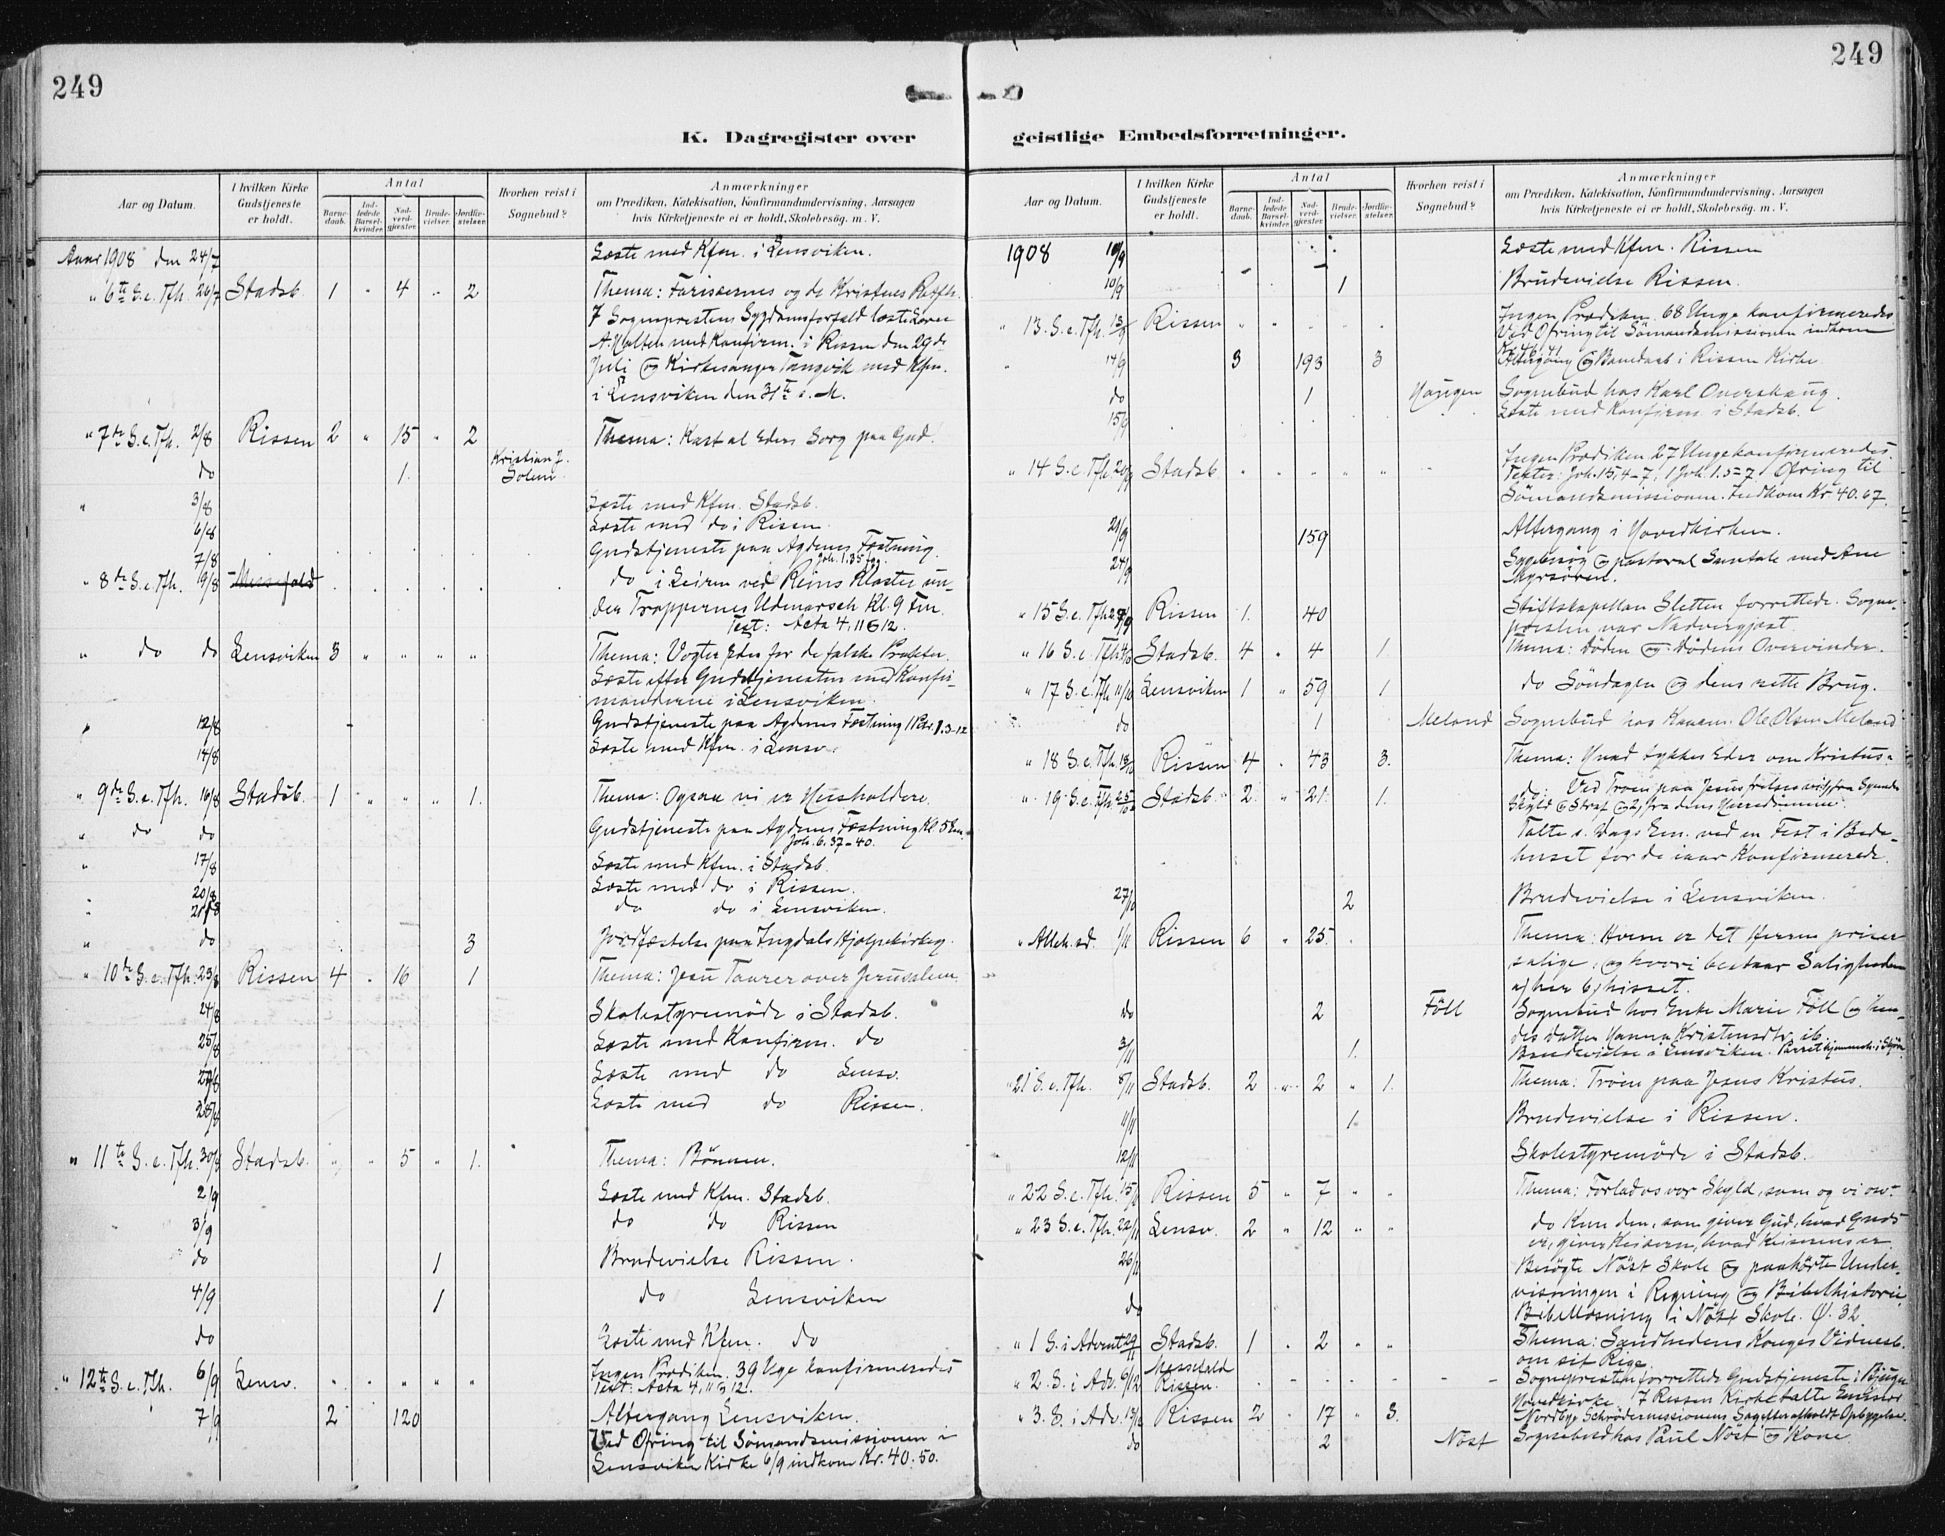 249
K. Dagregister over
Aar og Datum.
I hvilken Kirke Gudstjeneste er holdt.
Antal
Barnedaab.
Indledede Barselkvinder.
Nadverdgjæster.
Brudevielser.
Jordfæstelser.
Hvorhen reist i Sognebud?
Anmærkninger
om Prædiken, Katekisation, Konfirmandundervisning, Aarsagen
hvis Kirketjeneste ei er holdt, Skolebesøg. m. V.
Aaar 1908 den 24/7 Læste med Kfm. i Lensviken.
" 6te S. e. Tfh. 26/7 Stadsb. 1 " 4 " 2 Thema: Farisæernes og de Kristnes Retfh.
7 Sogneprestens Sygdomsforfald læste Lærer
A. Molten med Konfirm. i Rissen den 29de
Juli og Kirkesanger Tangvik med Kfm.
i Lensviken den 31te s. M.
" 7de S. e. Tfh. 2/8 Rissen 2 " 15 " 2 Thema: Kast al Eders Sorg paa Gud.
do 1. Kristian J. Solem
" 3/8 Læste med Kfm. Stadsb.
6/8 Læste med do i Rissen.
7/8 Gudstjeneste paa Agdenes Fæstning.
Joh. 1.35 fgg.
" 8de S. e. Tfh. 9/8 Messefald do i Leiren ved Reins Kloster un-
der Troppernes Udmarsch Kl. 9 Fm.
Text: Acta 4, 11 & 12.
" do do Lensviken 3 " " " " Thema: Vogter Eder for de falske Profeter.
Læste efter Gudstjenesten med Konfir-
manderne i Lensviken.
" 12/8 Gudstjeneste paa Agdenes Fæstning 1 Petr. 1.3-12
14/8 Læste med Kfm. i Lensv.
" 9de S. e. Tfh. 16/8 Stadsb. 1 " " " 1. Thema: Ogsaa vi er Husholdere.
" do do Gudstjeneste paa Agdenes Fæstning Kl. 5 Em.
Joh. 6. 37-40.
" 17/8 Læste med Kfm. i Stadsb.
20/8 Læste med do i Rissen.
" 21/8 do do i Lensviken.
" do 3 Jordfæstelse paa Ingdals Hjælpekirkeg.
" 10de S. e. Tfh. 23/8 Rissen 4 " 16 1 Thema: Jesu Taarer over Jerusalem.
24/8 Skolestyremöde i Stadsb.
25/8 Læste med Konfirm. do
27/8 Læste med do Lensv.
28/8 Læste med do Rissen.
" 11te S. e. Tfh. 30/8 Stadsb. " " 5 " 1. Thema: Bönnen.
2/9 Læste med Kfm. Stadsb.
3/9 do do Rissen
do 1 Brudevielse Rissen.
4/9 1 do Lensviken
do Læste med Kfm. do
" 12te S. e. Tfh. 6/9 Lensv. " " " " " Ingen Prædiken. 39 Uge konfirmeredes
Text: Acta 4, 11 & 12.
7/9 2 120 Altergang Lensviken.
Ved Ofring til Sömandsmissionen i
Lensviken Kirke 6/9 indkom Kr. 40.50.
249
geistlige Embedsforretninger.
Aar og Datum.
I hvilken Kirke Gudstjeneste er holdt.
Antal
Barnedaab.
Indledede Barselkvinder.
Nadverdgjæster.
Brudevielser.
Jordfæstelser.
Hvorhen reist i Sognebud?
Anmærkninger
om Prædiken, Katekisation, Konfirmandundervisning, Aarsagen
hvis Kirketjeneste ei er holdt, Skolebesøg. m. V.
1908 10/9 Læste med Kfm. Rissen
10/9 1 Brudevielse Rissen.
" 13. S. e. Tfh. 13/9 Rissen " " " " " Ingen Prædiken. 68 Unge konfirmeredes
Ved Ofring til Sömandsmissionen indkom
" 14/9 3 193 3 Altergang og Barnedaab i Rissen Kirke
do 1 Haugen Sognebud hos Karl Overskaug.
15/9 Læste med Konfirm. i Stadsb.
" 14 S. e. Tfh. 20/9 Stadsb. " " " " " Ingen Prædiken 27 Unge konfirmeredes.
Texter: Joh. 15, 4-7, 1 Joh. 1. 5-7. Ofring til
Sömandsmissionen. Indkom Kr 40.67.
21/9 159 Altergang i Hovedkirken.
24/9 Sygebesög og pastoral Samtale med Ane
Myrsören.
" 15 S. e. Tfh. 27/9 Rissen 1. 40 Stiftskapellan Sletten forrettede. Sogne-
præsten var Nadvergjæst.
" 16 S. e. Tfh. 4/10 Stadsb. 4 " 4 1. Thema: Döden og Dödens Overvinder.
" 17 S. e. Tfh 11/10 Lensviken 1 " 59 1 do Söndagen og dens rette Brug.
do 1 Meland Sognebud hos Kaarm. Ole Olsen Meland
" 18 S. e. Tfh. 18/10 Rissen 4 " 43 3. Thema: Hvad tykkes Eder om Kristus.
" 19 S. e. Tfh. 25/10 Stadsb. 2. " 21. 1. do: Ved Troen paa Jesus frelses vi 1) fra Syndens
Skyld & Straf og 2) fra dens Herredömme.
Talte s. Dags Em. ved en Fest i Bede-
huset for de iaar Konfirmerede.
27/10 2 Brudevielse i Lensviken.
" Alleh. sd. 1/11 Rissen 6 " 25 Thema: Hvem er det Herren priser
salige, og hvori bestaar Saligheden
a) her b) hisset.
do 2 Föll Sognebud hos Enke Marie Föll og hen-
des Datter Hanna Kristensdtr. ib.
3/11 1. Brudevielse i Lensviken.
21 S. e. Tfh. 8/11 Stadsb. 2 " 2 " 1. Thema: Troen paa Jesus Kristus.
11/11 1 Brudevielse i Rissen.
12/11 Skolestyremöde i Stadsb.
" 22 S. e. Tfh. 15/11 Rissen 5 " 7 " " Thema: Forlad os vor Skyld, som og vi osv.
" 23 S. e. Tfh. 22/11 Lensv. 2 " 12 " " do Kun den, som giver Gud, hvad Guds
er, giver Keiseren, hvad Keiserens er.
26/11 Besögte Nöst Skole og paahörte Under-
visningen i Regning og Bibelhistorie
do Bibellæsning i Nöst Skole. O. 32
" 1 S. i Advent 29/11 Stadsb. 1 " 2 " " Thema: Sandhedens Konges Vidnesb.
om sit Rige.
" 2. S. i Adv. 6/12 Messefald Rissen. Sognepresten forrettede Gudstjeneste i Bjugn
Hovedkirke. 7 Rissen Kirke talte Emissær
" 3. S. i Adv. 13/12 Rissen 2 " 17 " 3. Nordbye Schrödermissionens afholdt Opbyggelse.
do 2 Nöst Sognebud hos Paul Nöst og Kone